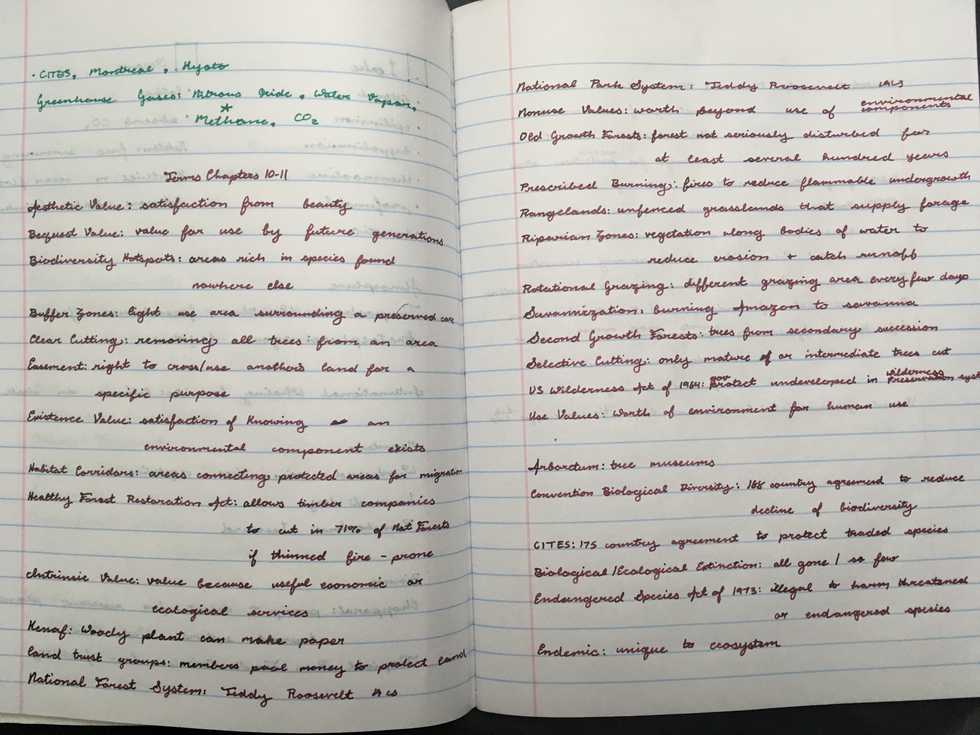 · CITES, Montreal, Kyoto
Greenhouse Gases: Nitrous Oxide, Water Vapor,
* Methane, CO2
Terms Chapters 10-11
Aesthetic Value: satisfaction from beauty
Bequest Value: value for use by future generations
Biodiversity Hotspots: areas rich in species found
nowhere else
Buffer Zones: light use area surrounding a preserved one
Clear Cutting: removing all trees from an area
Easement: right to cross/use another's land for a
specific purpose
Existence Value: satisfaction of Knowing an
environmental component exists
Habitat Corridors: areas connecting protected areas for migration
Healthy Forest Restoration Act: allows timber companies
to cut in 71% of Nat Forests
if thinned fire-prone
Intrinsic Value: value because useful economic or
ecological services
Kenaf: Woody plant can make paper
Land trust groups: members pool money to protect land
National Forest System: Teddy Roosevelt
National Park System: Teddy Roosevelt
Nonuse Values: worth beyond use of environmental components
Old Growth Forests: forest not seriously disturbed for
at least several hundred years
Prescribed Burning: fires to reduce flammable undergrowth
Rangelands: unfenced grasslands that supply forage
Riparian Zones: vegetation along bodies of water to
reduce erosion + catch runoff
Rotational Grazing: different grazing area every few days
Savannization: burning Amazon to savanna
Second Growth Forests: trees from secondary succession
Selective Cutting: only mature of or intermediate trees cut
US Wilderness Act of 1964: gov protect undeveloped in wilderness preservation syst
Use Values: Worth of environment for human use
Arboretum: tree museums
Convention Biological Diversity: 188 country agreement to reduce
decline of biodiversity
CITES: 175 country agreement to protect traded species
Biological/Ecological Extinction: all gone / so few
Endangered Species Act of 1973: illegal to harm threatened
or endangered species
Endemic: unique to ecosystem